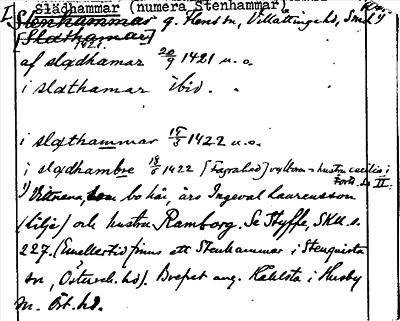 Slädhammar (numera Stenhammar)
Stenhammar g. Flens sn, Villåttinge hd, Smld
[Slädhamar]
1421.
af sladhamar 20/9 1421 u.o.
i slathamar ibid.
i slathammar 15/5 1422 u.o.
i sladhambre 18/5 1422 [Fagrahed]
1) Vittnena, som bo här, äro Ingeval Laurensson
(lilje) och hustru Ramborg. Se Styffe, SkU s.
227. (Emellertid finns ett Stenhammar i Stenqvista
sn, Österreh. hd). Brefvet ang. Kahlsta i Husby
sn. Öst. hd.